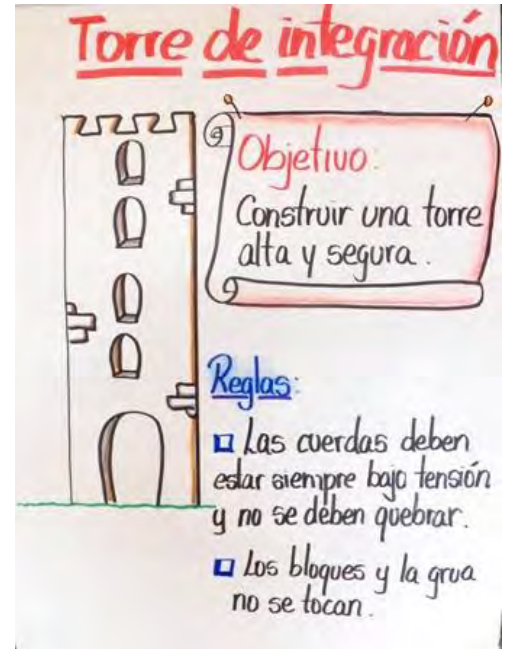 Torre de integración
Objetivo:
Construir una torre
alta y segura.
Reglas:
Las cuerdas deben
estar siempre bajo tensión
y no se deben quebrar.
Los bloques y la grua
no se tocan.